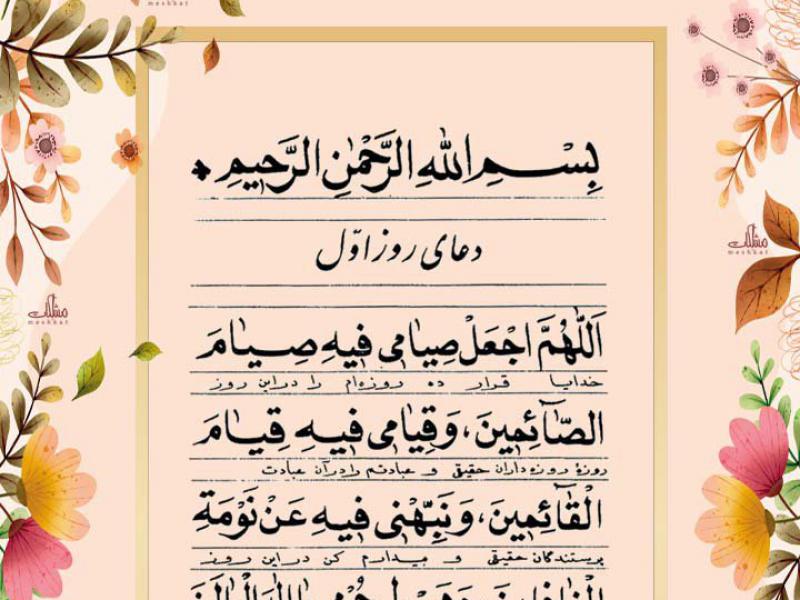 meshkat
بِسْمِ اللهِ الرَّحْمٰنِ الرَّحیمِ
دعای روز اوّل
اَللّٰهُمَّ اجْعَلْ صِیامی فیهِ صِیامَ
خدایا قرار ده روزه‌ام را در این روز
الصّآئِمینَ، وَقِیامی فیهِ قِیامَ
روزهٔ روزه‌داران حقیقی و عبادتم را در آن عبادت
الْقآئِمینَ، وَنَبِّهْنی فیهِ عَنْ نَوْمَةِ
پرستندگان حقیقی و بیدارم کن در این روز
مشکات
meshkat
مشکات
meshkat